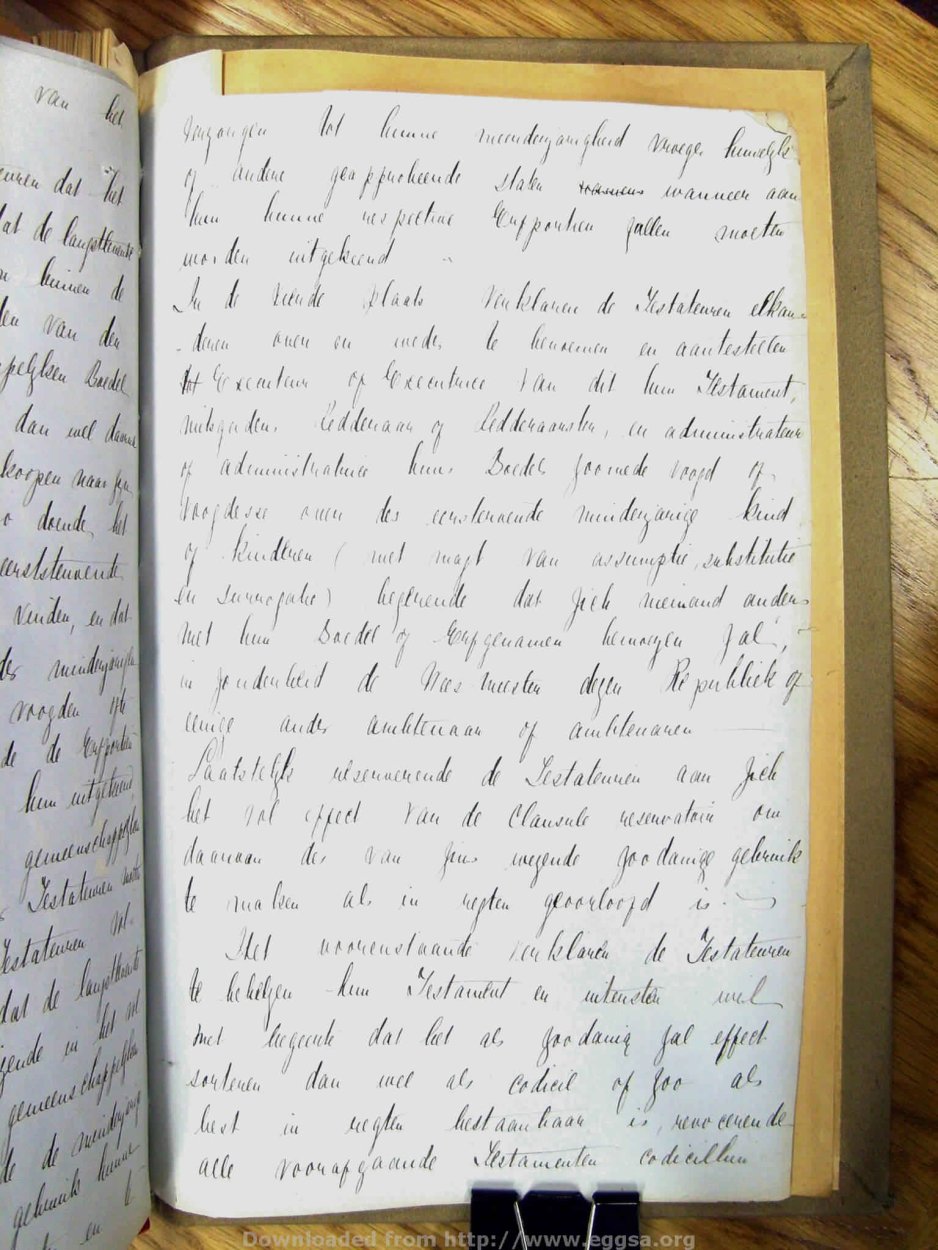 van het
dat het
dat de langstlevende
binnen de
van den
Boedel
dan wel
koopen naar
doende het
eerststervende
vinden, en dat
minderjarigen
voogden
de de Erfportien
hun uitgekeerd
gemeenschappelyken
Testateuren
Testateuren
dat de langstlevende
in het vol
gemeenschappelyken
de minderjarige
gebruik hunne
en
tot hunne meerderjarigheid vroeger huwelyk
of andere geapprobeerde staten wanneer aan
hun hunne respective Erfportien zullen moeten
worden uitgekeerd
In de vierde plaats verklaren de Testateuren elkan-
deren over en weder te benoemen en aantestellen
tot Executeur of Executrice van dit hun Testament,
mitsgaders Redderaar of Redderaarster, en administrateur
of administratrice huns Boedels zoomede voogd of
voogdesse over des eerstervende minderjarige kind
of kinderen (met magt van assumptie, substitutie
en surrogatie) begeerende dat zich niemand anders
met hun Boedel of Erfgenamen bemoeyen zal,
in zonderheid de Weesmeesters dezer Republiek of
eenige ander ambtenaar of ambtenaren
Laatstelyk reserveerende de Testateuren aan zich
het vol effect van de Clausule reservatoir om
daarvan des van zins wezende zoodanige gebruik
te maken als in regten geoorloofd is.
Het voorenstaande verklaren de Testateuren
te behelzen hun Testament en uitersten wil
met begeerte dat het als zoodanig zal effect
sorteren dan wel als codicil of zoo als
best in regten bestaanbaar is, revoceerende
alle voorafgaande Testamenten codicillen
Downloaded from http://www.eggsa.org